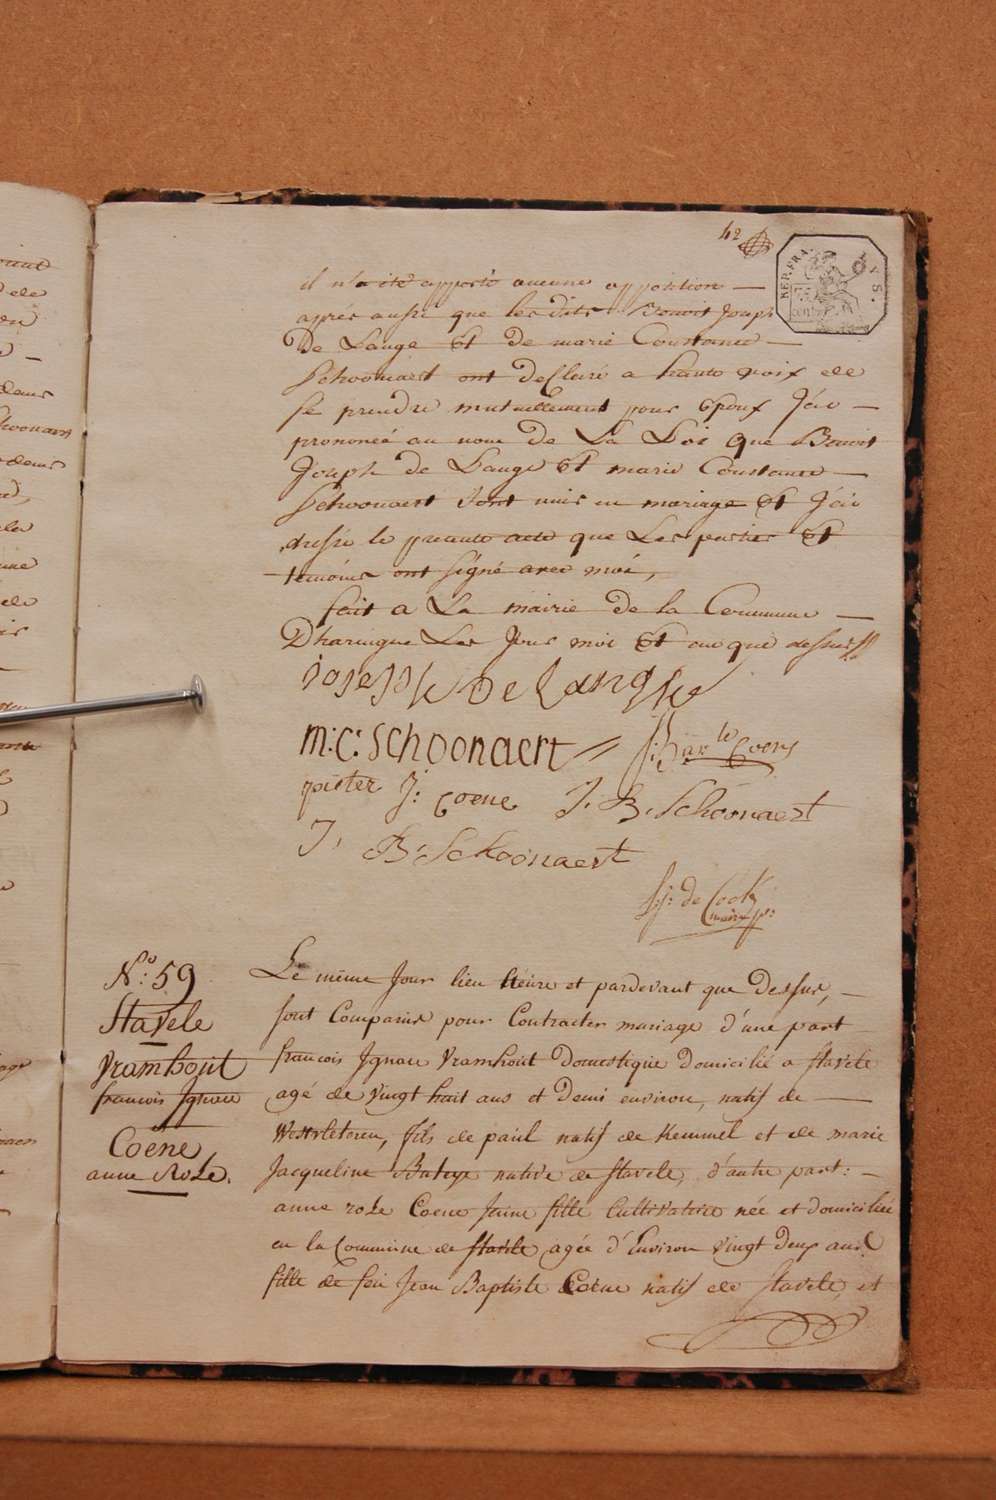 42
REP. FRA.
75
CENT
il n'a été apporté aucune opposition —
après aussi que les dits Benoit Joseph
De Lange Et De marie Constance —
Schoonaert ont desClaré a haute voix de
se prendre mutuellement pour Epoux J'ai —
prononcé au nom de La Loi que Benoit
Joseph de Lange Et marie Constance —
Schoonaert sont unis en mariage et J'ai
dressé le présente acte que Les parties Et
temoins ont signé avec moi,
fait a La mairie de la Commune —
Dharingue Les Jour moi Et an que dessus
joseph De Langhe
m: c: schoonaert
pieter J: Coene J. B. Schoonaert
J. B. Schoonaert
de Cock
maire
N.º 59
Stavele
Vramhout
francois Ignace
et
Coene
anne Rose.
Le même Jour lieu héure et pardevant que Dessus, —
sont Comparus pour Contracter mariage d'une part
francois Ignace Vramhout Domestique Domicilié a Stavele
agé de vingt huit ans et Demi environ, natif de —
Westvleteren, fils de paul natif de Kemmel et de marie
Jacqueline native de Stavele, d'autre part: —
anne rose Coene Jeune fille Cultivatrice née et domiciliée
en la Commune de Stavele agée d'Environ vingt Deux ans
fille de feu Jean Baptiste Coene natif de Stavele et